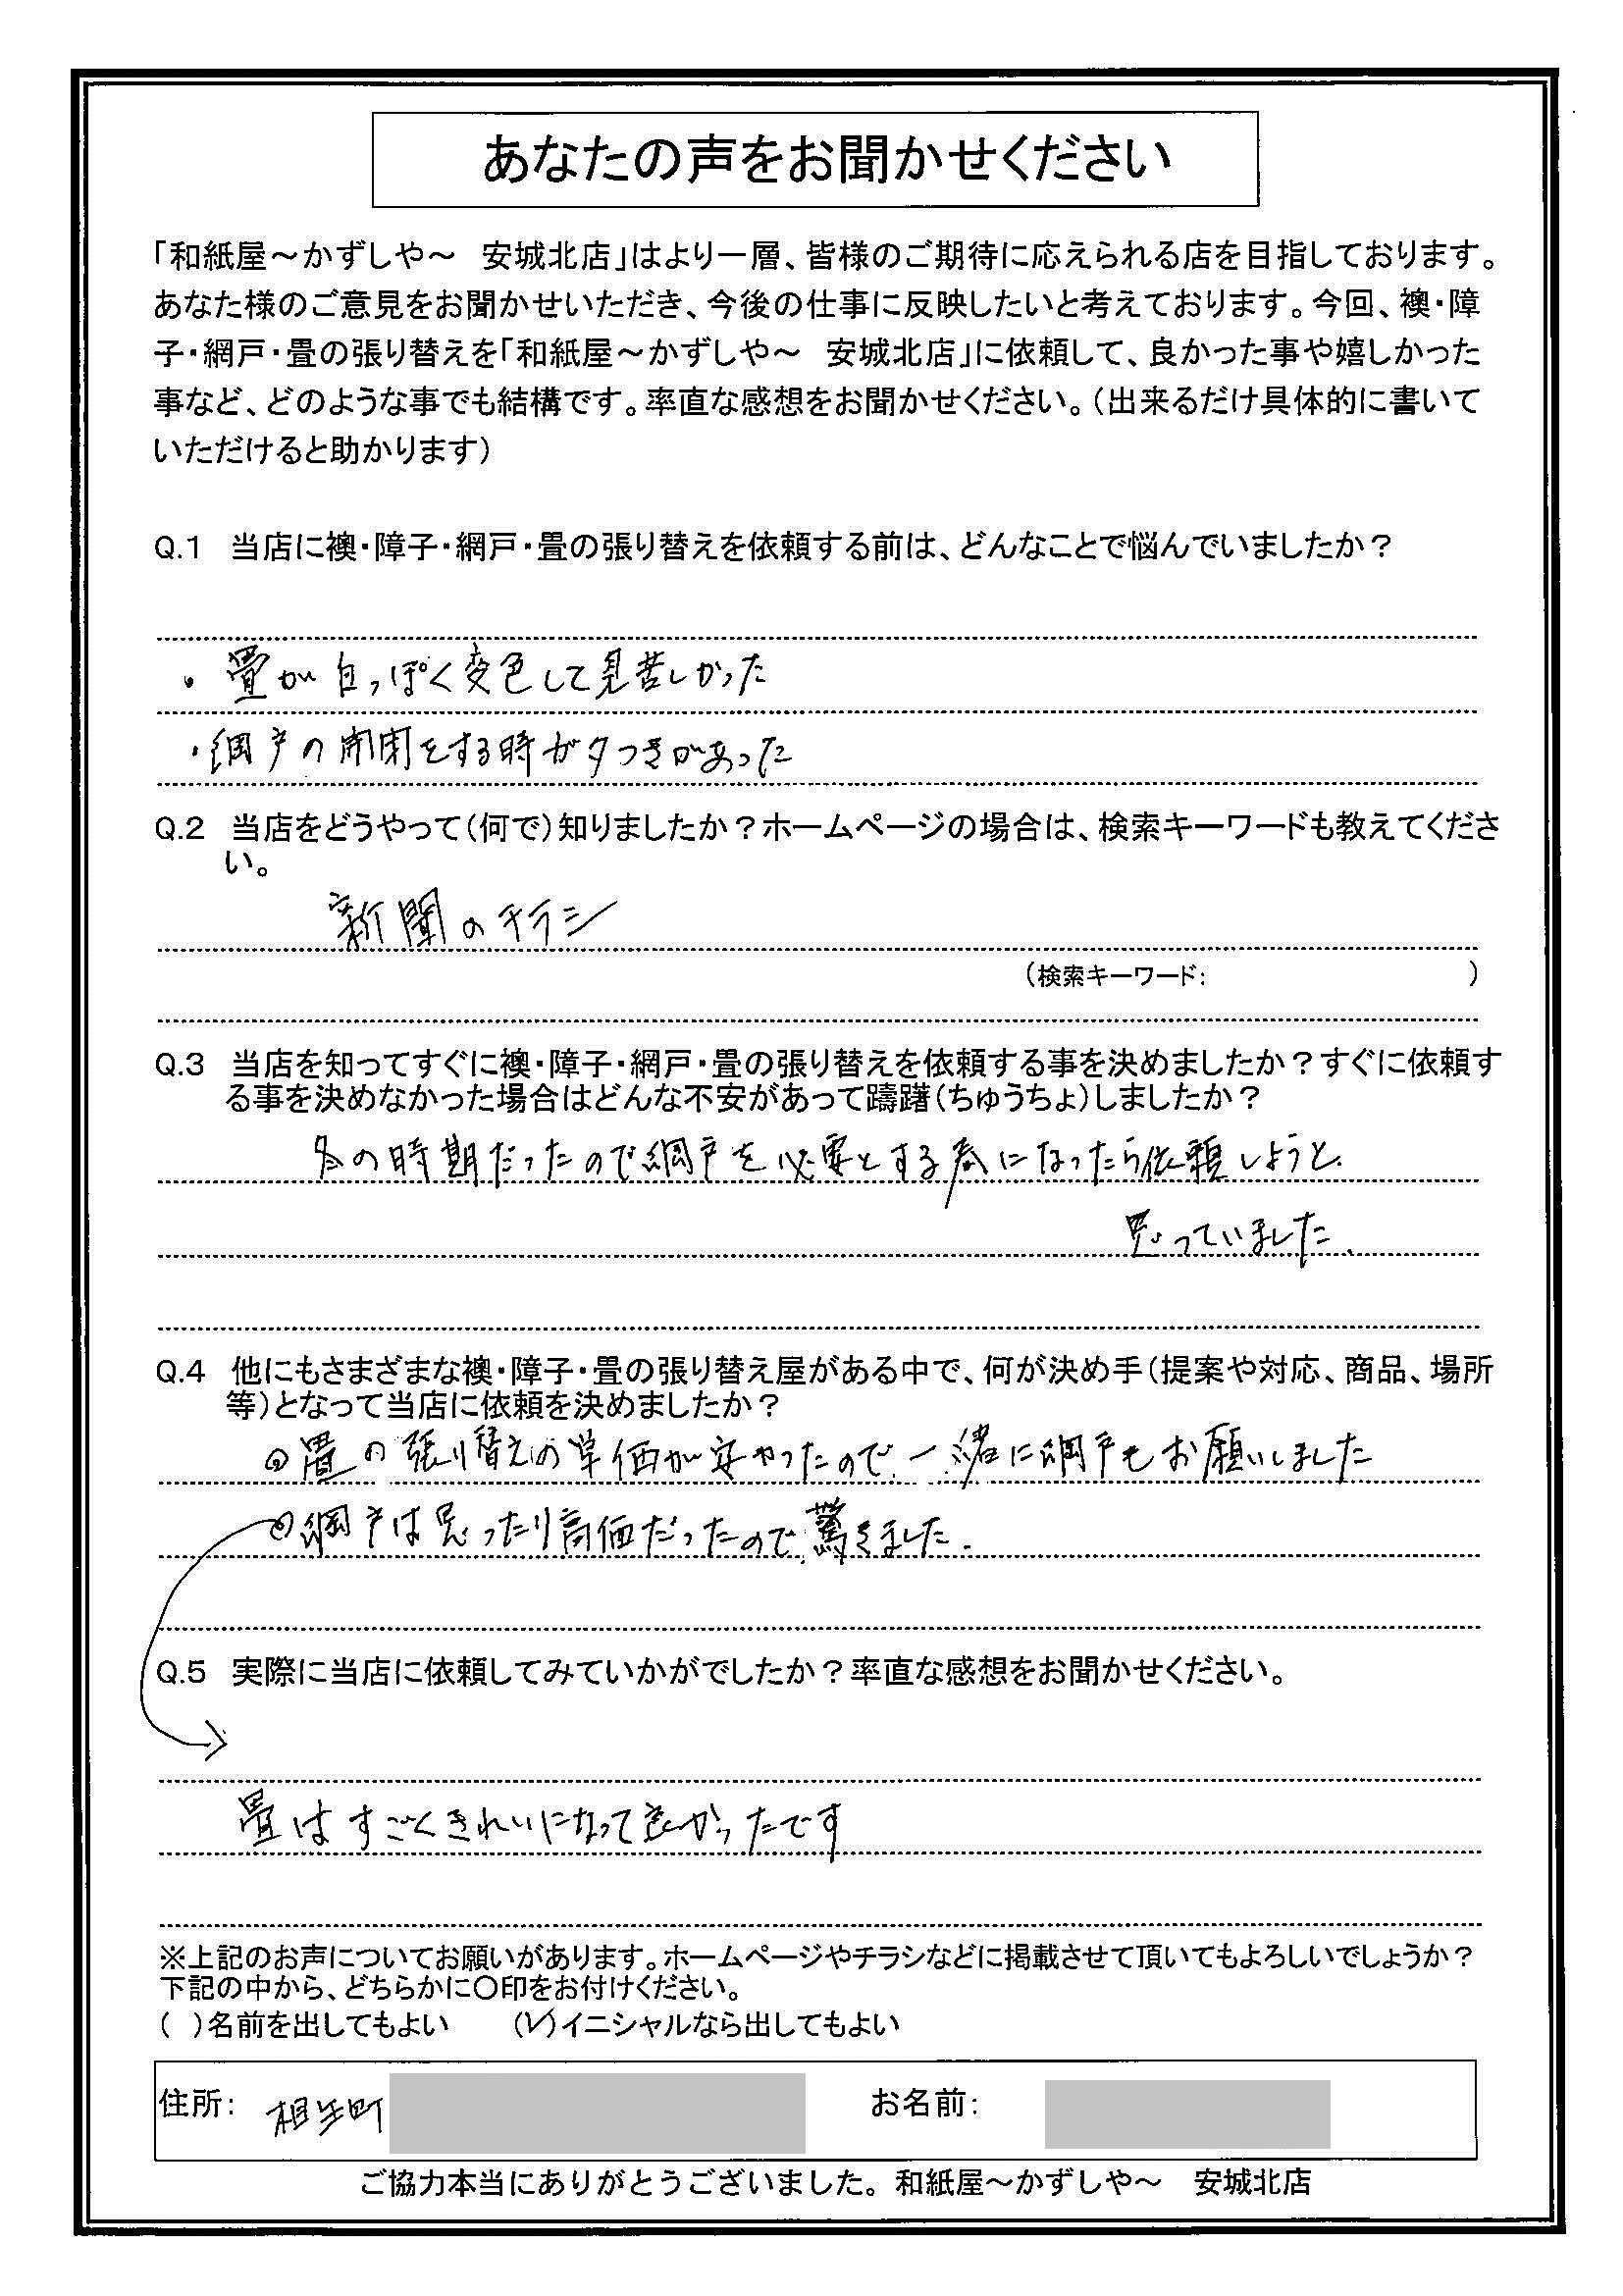 あなたの声をお聞かせください
「和紙屋～かずしや～　安城北店」はより一層、皆様のご期待に応えられる店を目指しております。
あなた様のご意見をお聞かせいただき、今後の仕事に反映したいと考えております。今回、襖・障
子・網戸・畳の張り替えを「和紙屋～かずしや～　安城北店」に依頼して、良かった事や嬉しかった
事など、どのような事でも結構です。率直な感想をお聞かせください。（出来るだけ具体的に書いて
いただけると助かります）
Q.1　当店に襖・障子・網戸・畳の張り替えを依頼する前は、どんなことで悩んでいましたか？
・畳が白っぽく変色して見苦しかった
・網戸の開閉をする時ガタつきがあった
Q.2　当店をどうやって（何で）知りましたか？ホームページの場合は、検索キーワードも教えてくださ
い。
新聞のチラシ
（検索キーワード：　　　　　　　　）
Q.3　当店を知ってすぐに襖・障子・網戸・畳の張り替えを依頼する事を決めましたか？すぐに依頼す
る事を決めなかった場合はどんな不安があって躊躇（ちゅうちょ）しましたか？
冬の時期だったので網戸を必要とする春になったら依頼しようと、
思っていました。
Q.4　他にもさまざまな襖・障子・畳の張り替え屋がある中で、何が決め手（提案や対応、商品、場所
等）となって当店に依頼を決めましたか？
◎畳の張り替えの単価が安やったので、一緒に網戸もお願いしました
◎網戸は思ったり高価だったので、驚きました。
Q.5　実際に当店に依頼してみていかがでしたか？率直な感想をお聞かせください。
畳はすごくきれいになって良かったです
※上記のお声についてお願いがあります。ホームページやチラシなどに掲載させて頂いてもよろしいでしょうか？
下記の中から、どちらかに〇印をお付けください。
（　）名前を出してもよい　　（レ）イニシャルなら出してもよい
住所：　相生町　　お名前：
ご協力本当にありがとうございました。和紙屋～かずしや～　安城北店